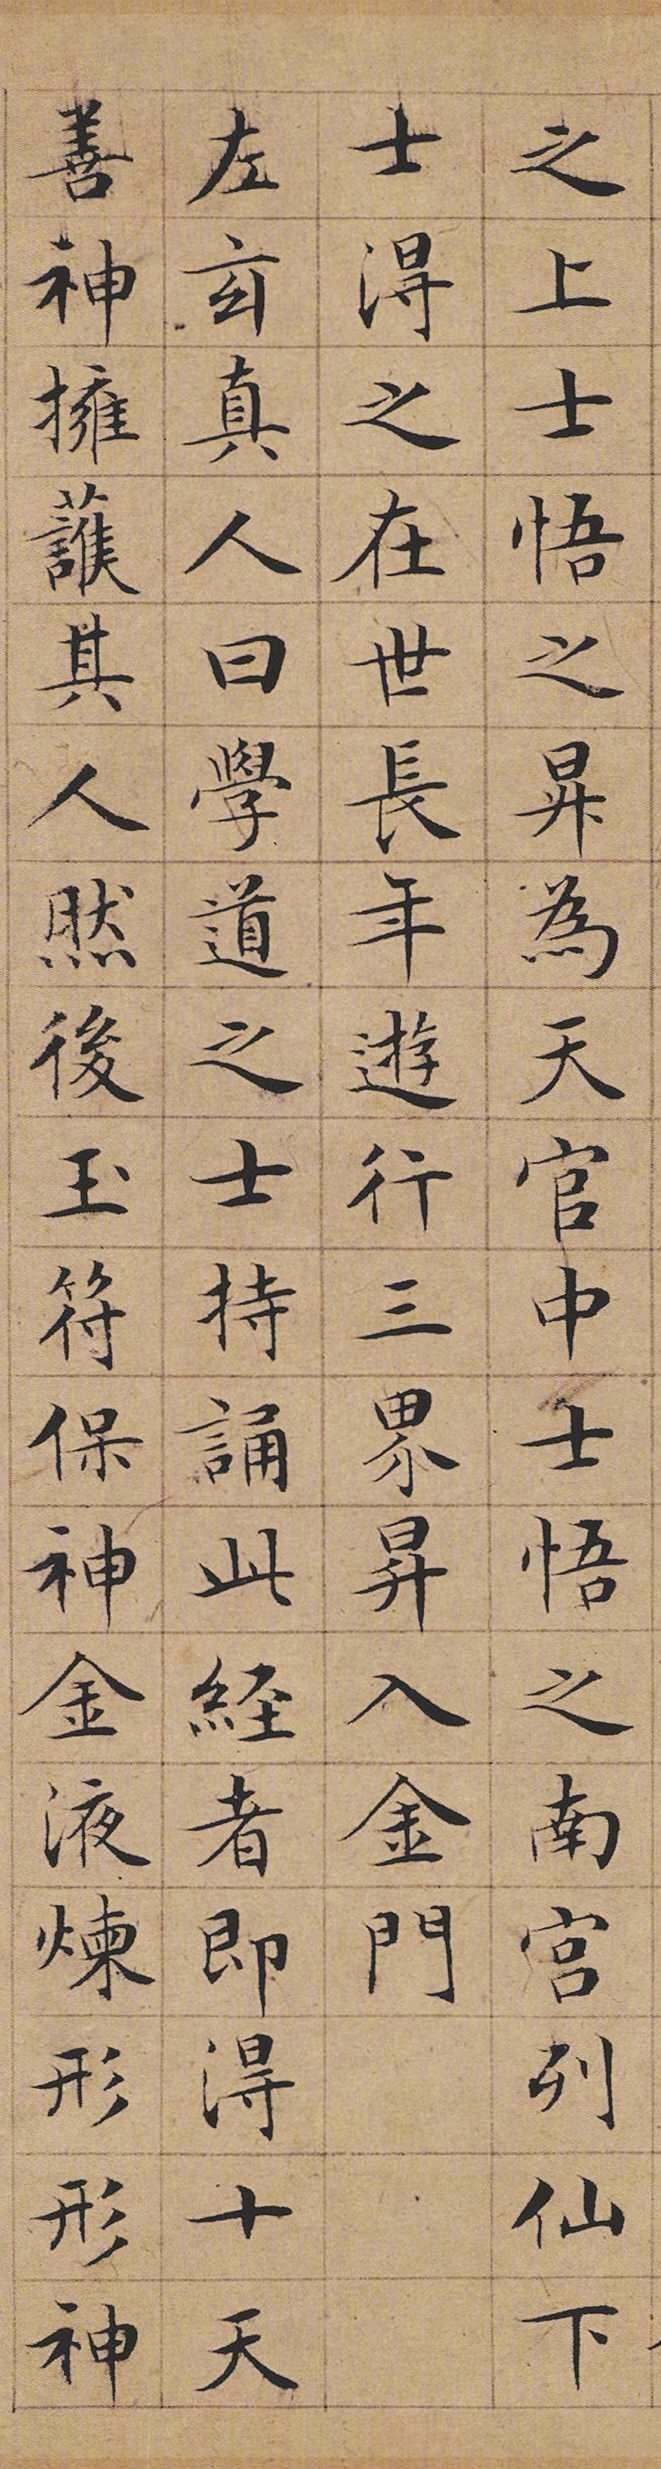 之上士悟之昇為天官中士悟之南宮列仙下
士得之在世長年遊行三界昇入金門
左玄真人曰學道之士持誦此経者即得十天
善神擁護其人然後玉符保神金液煉形形神